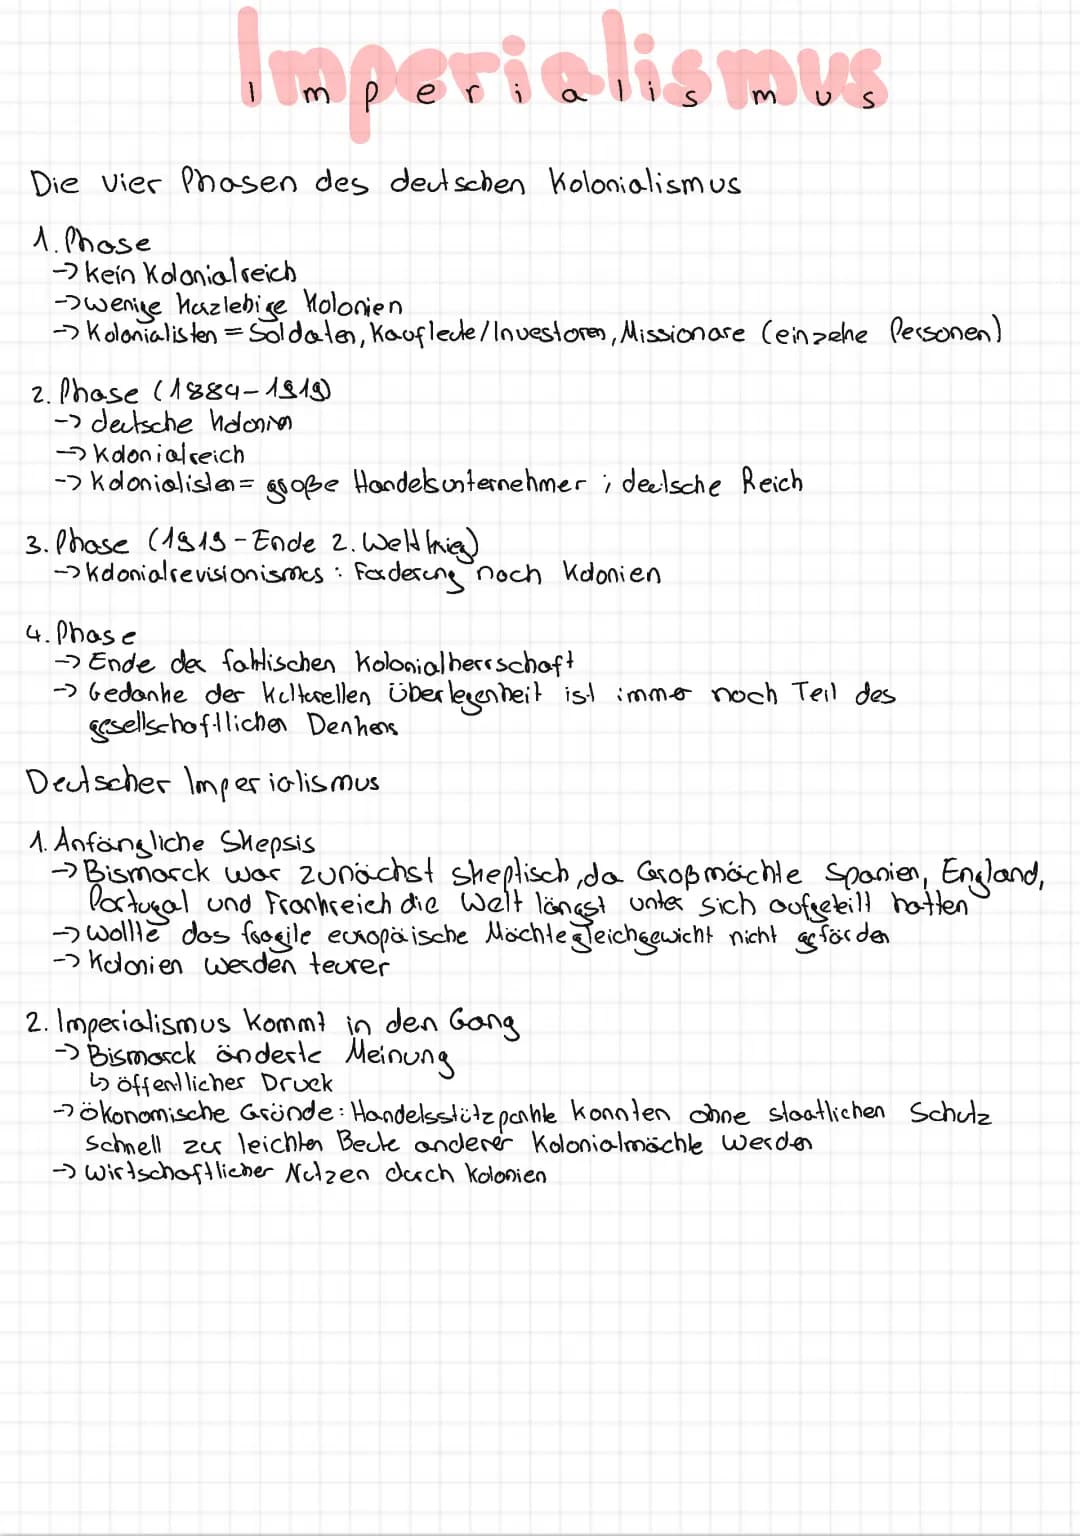 Imperialismus
Imperialismus
Die vier Phasen des deutschen Kolonialismus
1. Phase
→ kein Kolonialreich
→ wenige kurzlebige Kolonien
→ Kolonialisten = Soldaten, Kaufleute/Investoren, Missionare (einzelne Personen)
2. Phase (1884-1919)
→ deutsche Kolonien
→ Kolonialreich
→ Kolonialisten = große Handelsunternehmer ; deutsche Reich
3. Phase (1919 - Ende 2. Weltkrieg)
→ Kolonialrevisionismus : Forderung nach Kolonien
4. Phase
→ Ende der faktischen Kolonialherrschaft
→ Gedanke der kulturellen Überlegenheit ist immer noch Teil des
gesellschaftlichen Denkens
Deutscher Imperialismus
1. Anfängliche Skepsis
→ Bismarck war zunächst skeptisch, da Großmächte Spanien, England,
Portugal und Frankreich die Welt längst unter sich aufgeteilt hatten
→ wollte das fragile europäische Mächtegleichgewicht nicht gefärden
→ Kolonien werden teurer
2. Imperialismus kommt in den Gang
→ Bismarck änderte Meinung
↳ öffentlicher Druck
→ ökonomische Gründe: Handelsstützpunkte konnten ohne staatlichen Schutz
schnell zur leichten Beute anderer Kolonialmächte werden
→ wirtschaftlicher Nutzen durch Kolonien